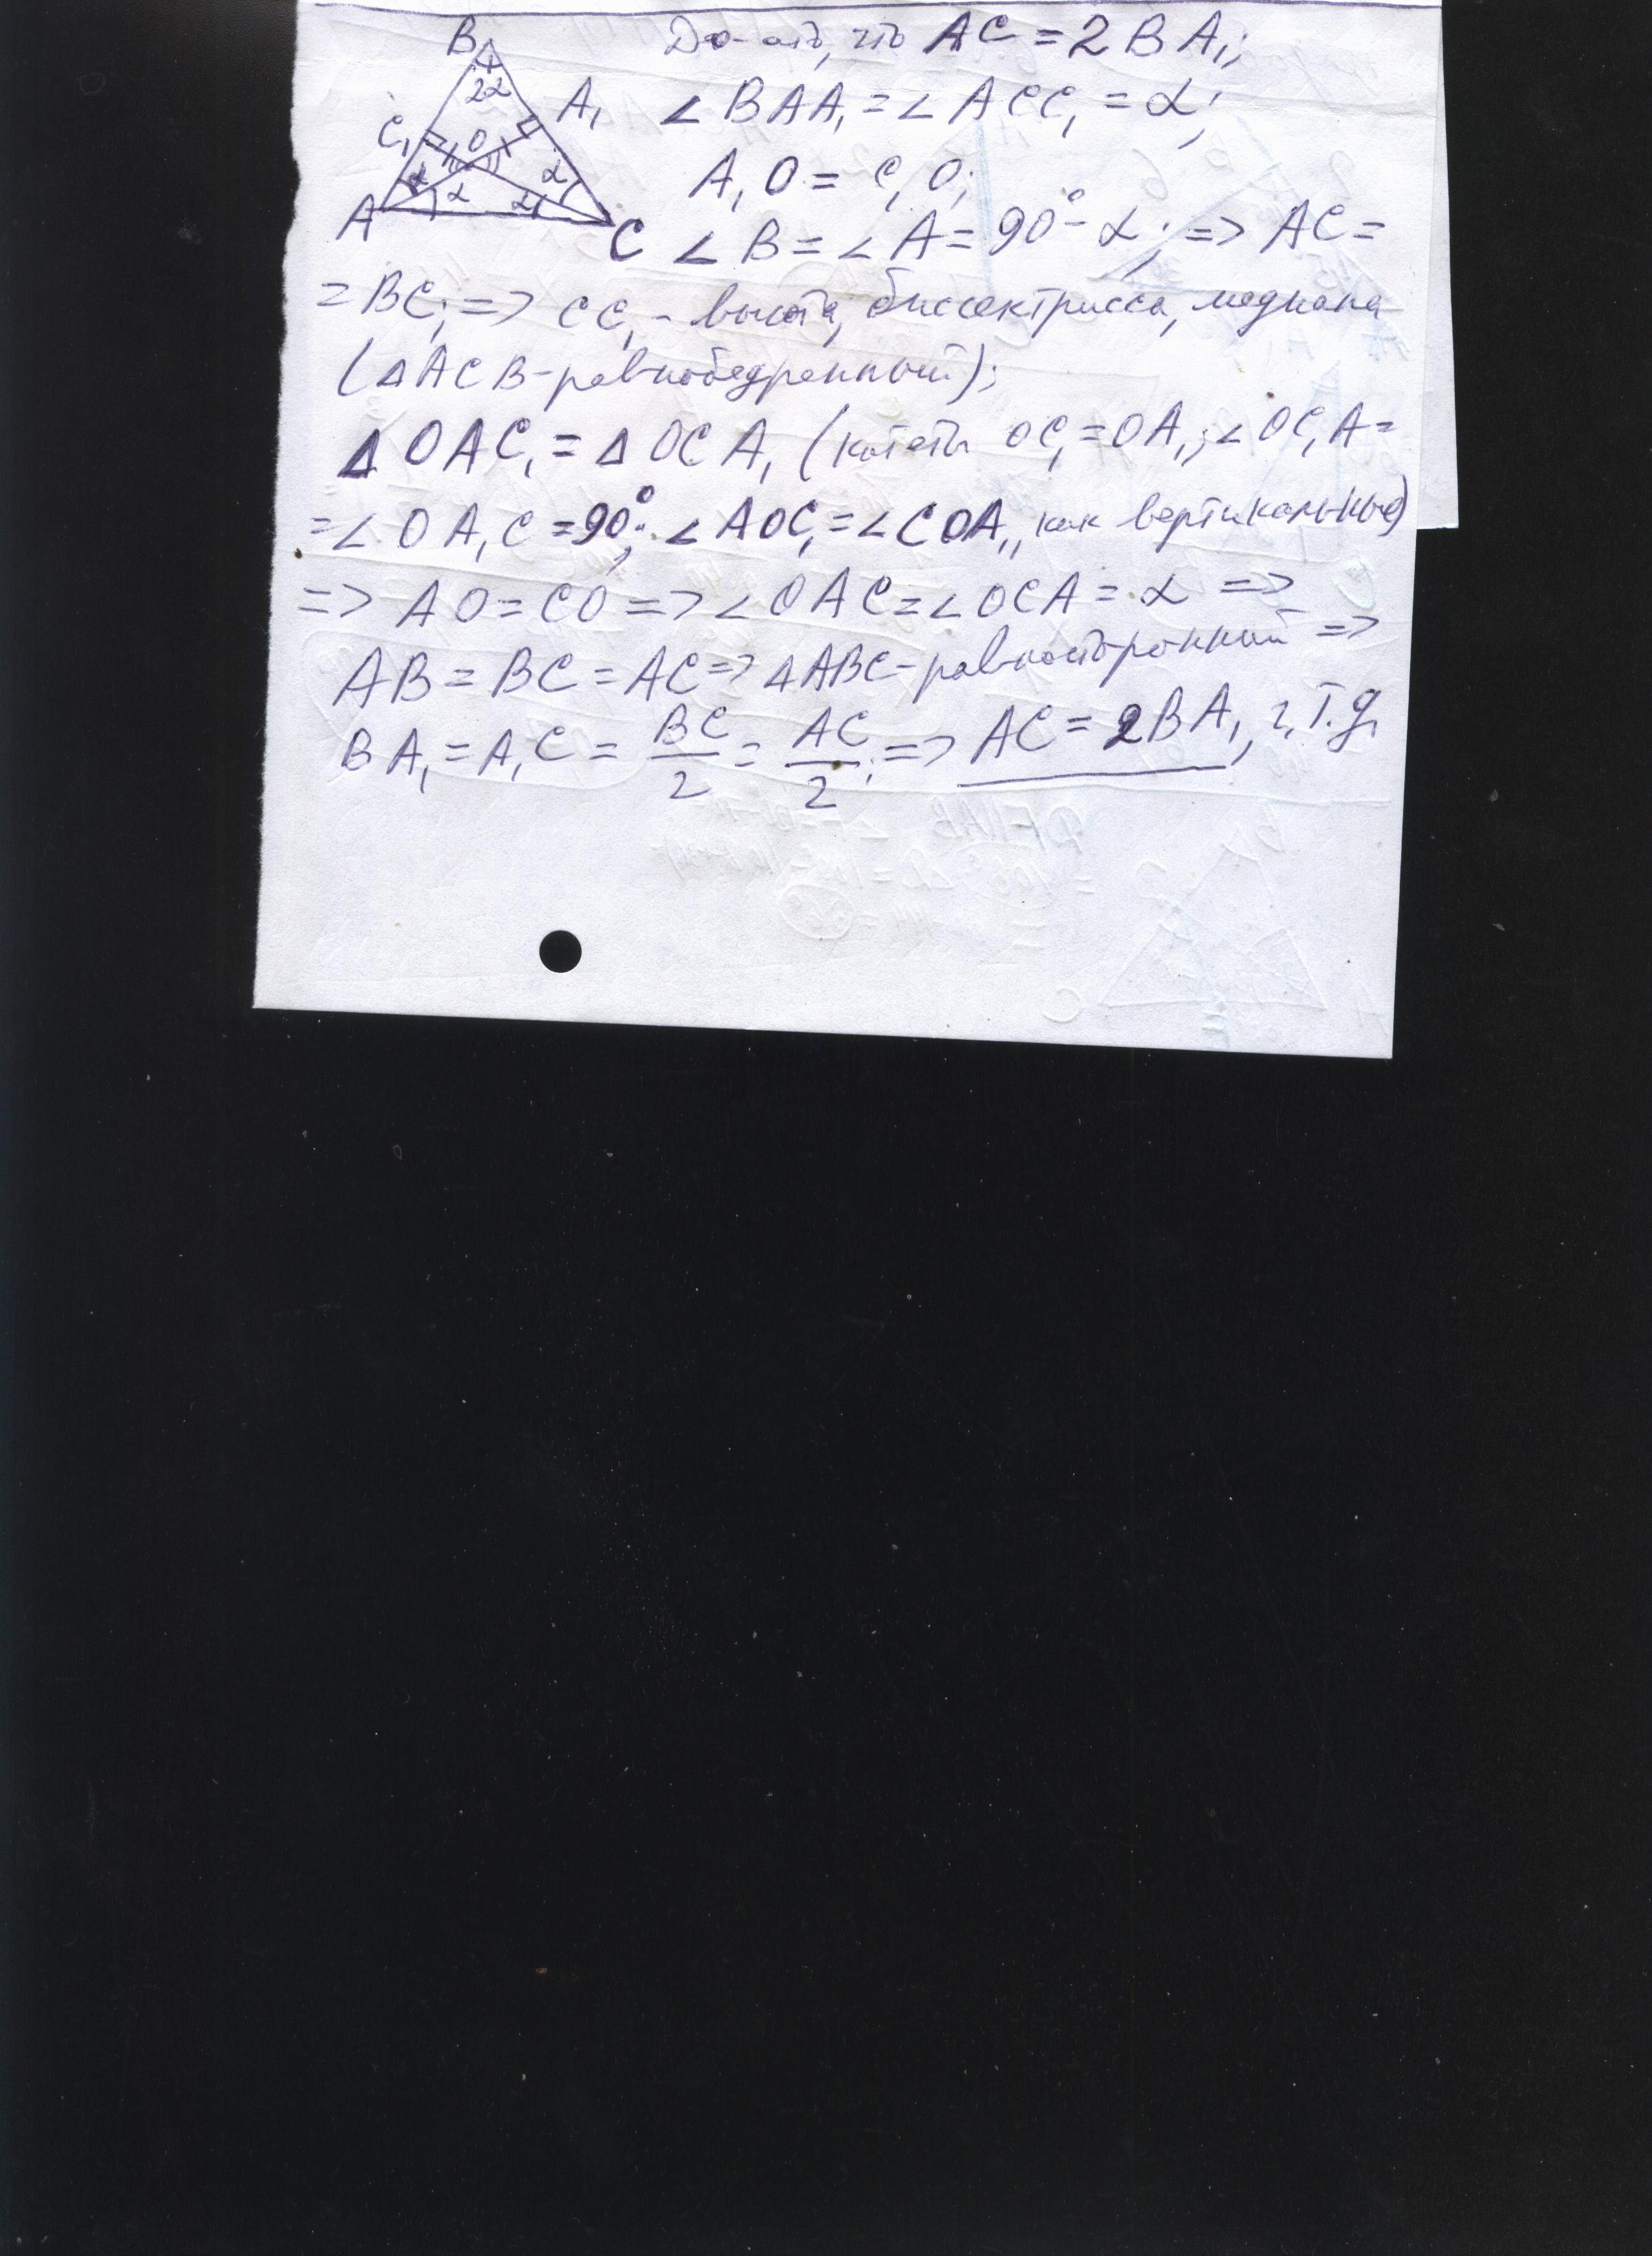 B
2α
A₁
C₁
O
α
α
α
α
A
C
До-ать, что AC = 2BA₁;
∠BAA₁ = ∠ACC₁ = α;
A₁O = C₁O;
∠B = ∠A = 90° - α; => AC =
= BC; => CC₁ - высота, биссектрисса, медиана
(△ACB - равнобедренный);
△OAC₁ = △OCA₁ (катеты OC₁ = OA₁; ∠OC₁A =
= ∠OA₁C = 90°; ∠AOC₁ = ∠COA₁, как вертикальные)
=> AO = CO => ∠OAC = ∠OCA = α =>
AB = BC = AC => △ABC - равносторонний =>
BA₁ = A₁C = BC/2 = AC/2; => AC = 2BA₁, ч.т.д.